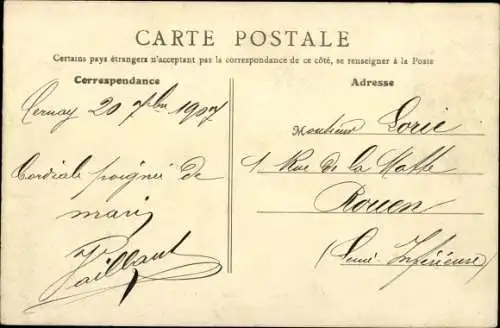 CARTE POSTALE
Certains pays étrangers n'acceptant pas la correspondance de ce côté, se renseigner à la Poste
Correspondance
Adresse
Cernay 20 7bre 1907
Cordiale poignée de
main
Vaillant
Monsieur Lorie
1 Rue de la Motte
Rouen
(Seine Inférieure)